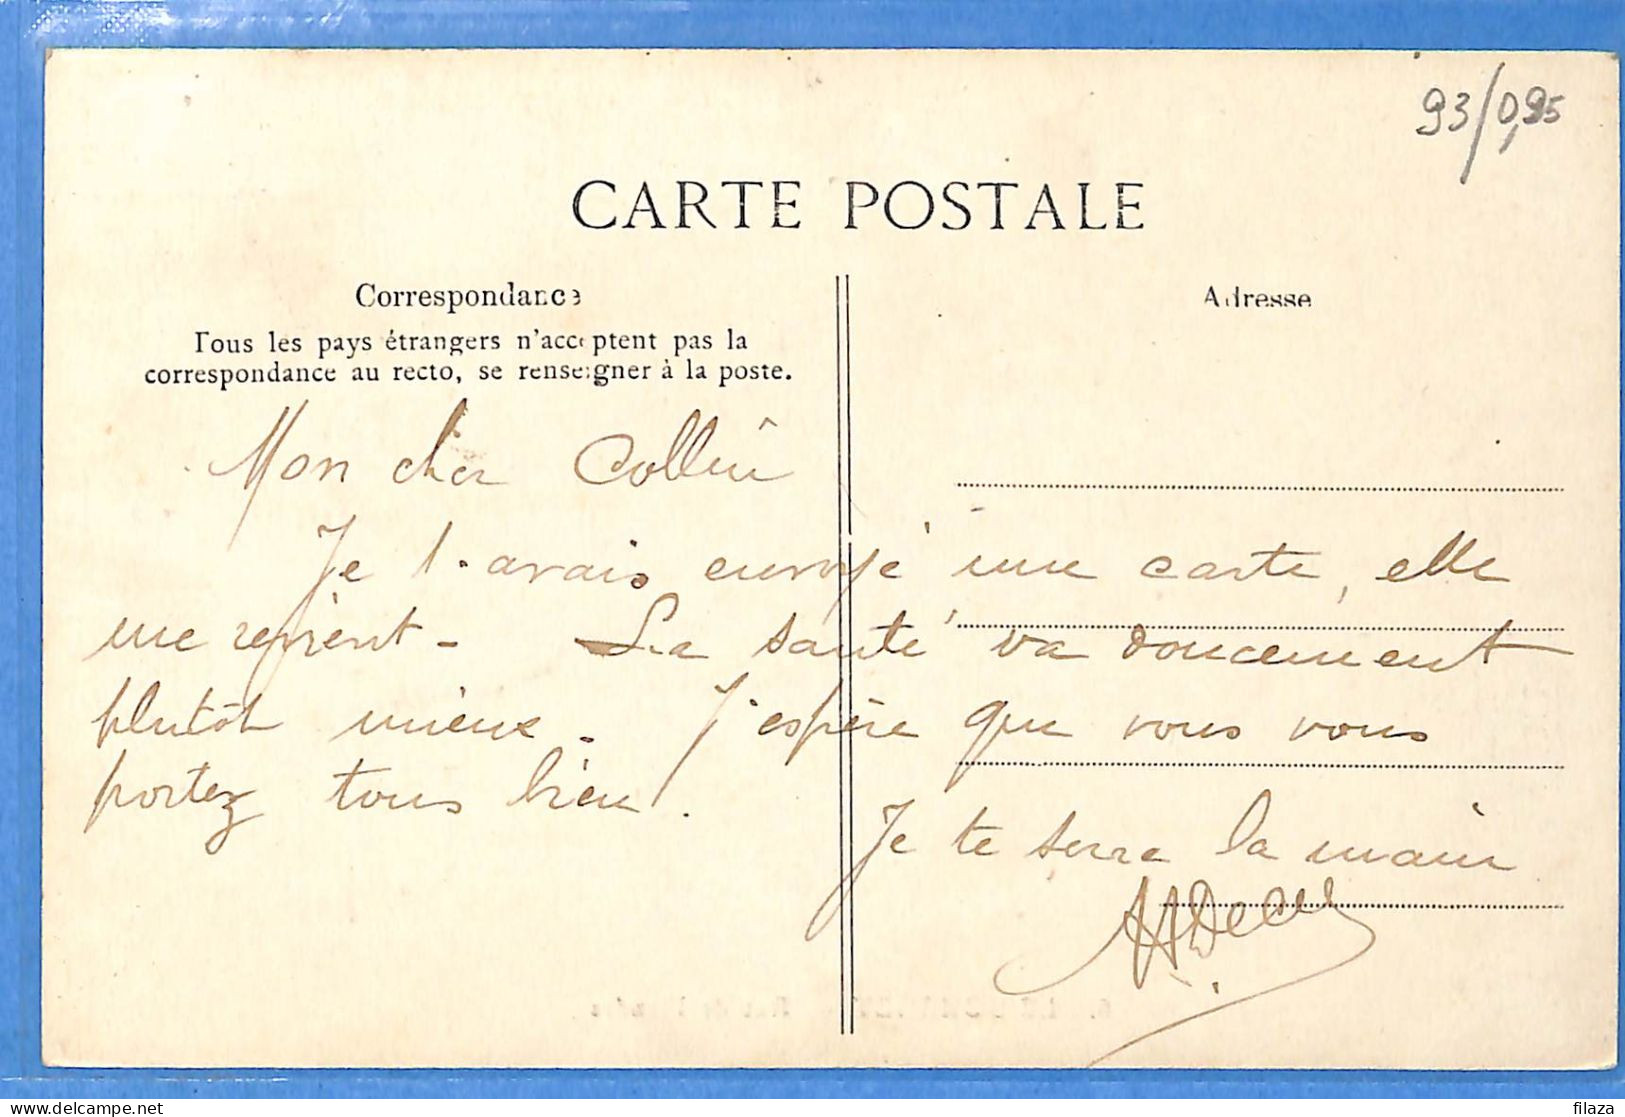 93/0,95
CARTE POSTALE
Correspondance
Adresse
Tous les pays étrangers n'acceptent pas la
correspondance au recto, se renseigner à la poste.
Mon cher Collin
Je t'avais envoyé une carte, elle
me revient - La santé va doucement
plutôt mieux. J'espère que vous vous
portez tous bien.
Je te serre la main
filaza
www.delcampe.net